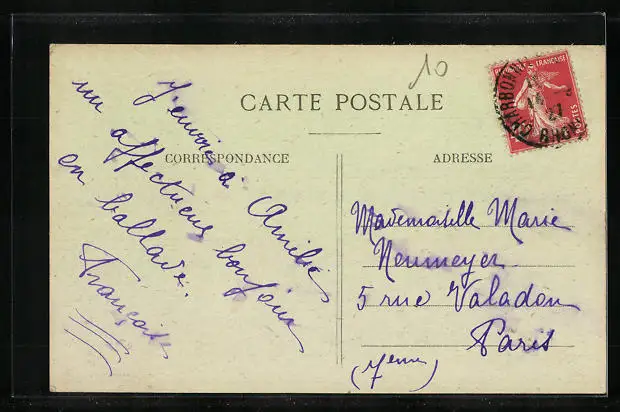 10
CARTE POSTALE
CORRESPONDANCE
ADRESSE
J'envoie à Amilie
un affectueux bonjour
en ballade.
Mademoiselle Marie
Neumeyer
5 rue Valadon
Paris
(7eme)